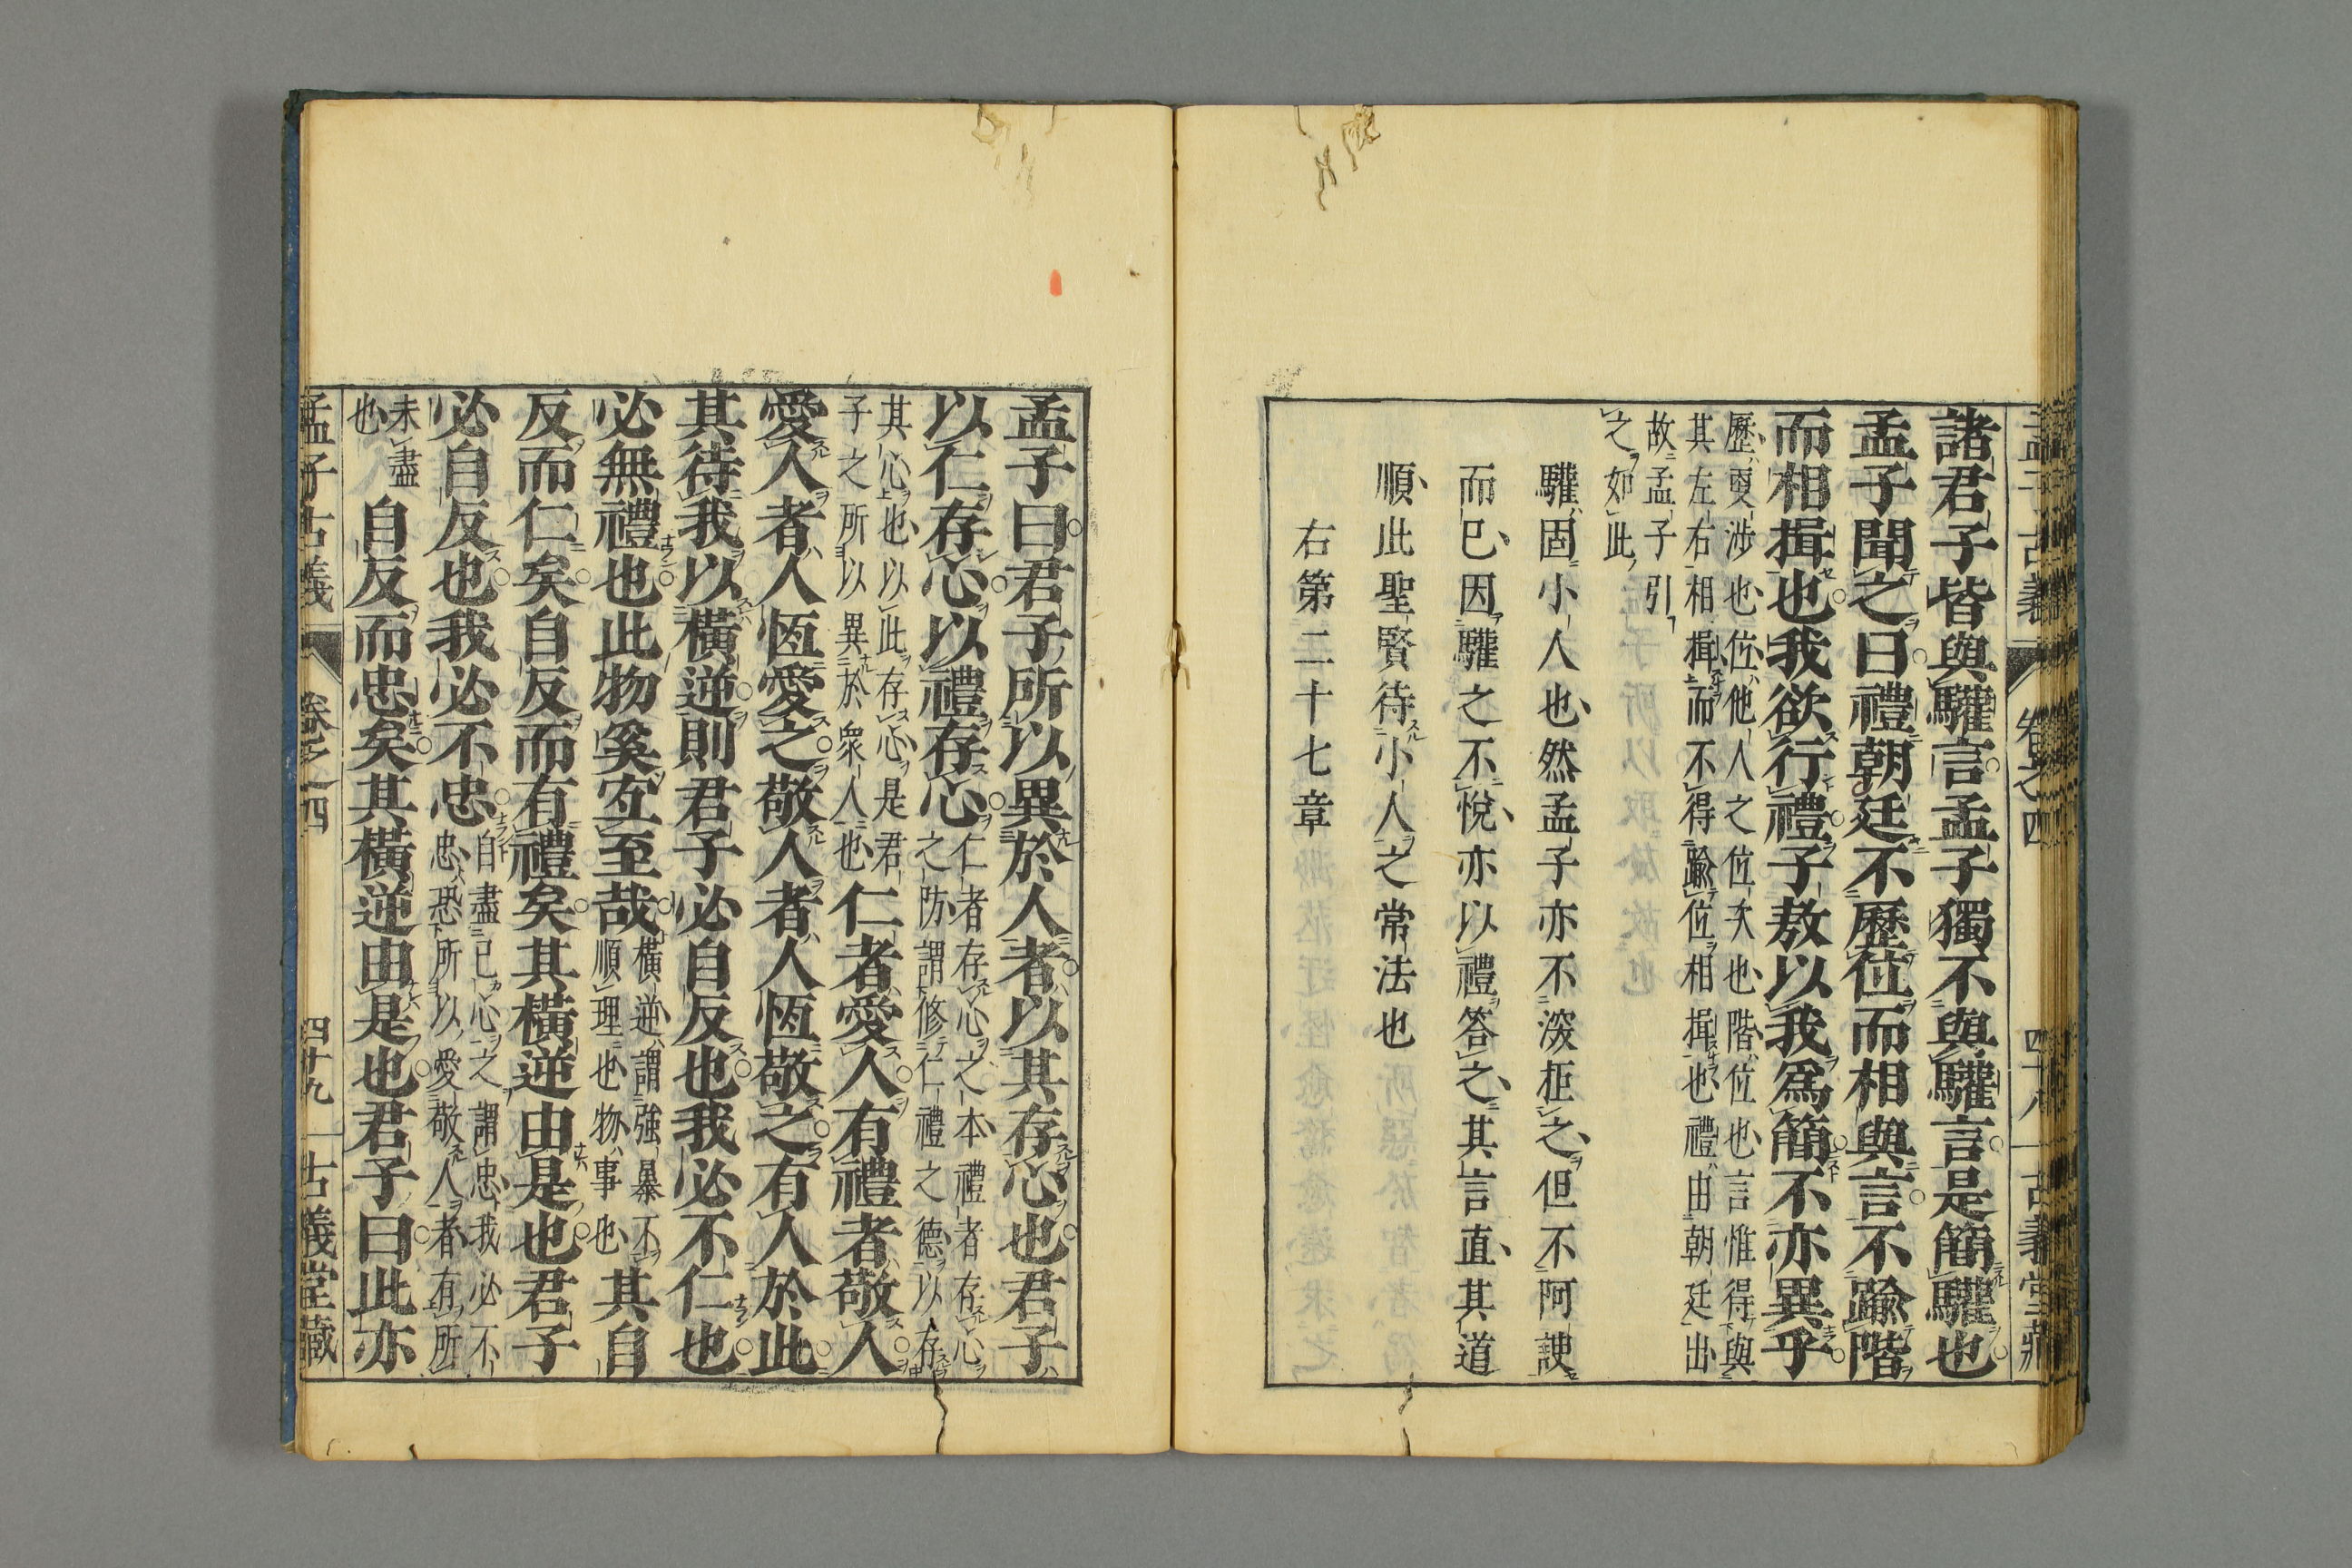 諸君子皆與驩言孟子獨不與驩言是簡驩也
孟子聞之曰禮朝廷不歷位而相與言不踰階
而相揖也我欲行禮子敖以我爲簡不亦異乎
歷更涉也位他人之位次也階位也言惟得與
其左右相揖而不得踰位相揖也禮由朝廷出
故孟子引
之如此
驩固小人也然孟子亦不深拒之但不阿諛
而已因驩之不悅亦以禮答之其言直其道
順此聖賢待小人之常法也
右第二十七章
孟子曰君子所以異於人者以其存心也君子
以仁存心以禮存心
仁者存心之本禮者存心
之防謂修仁禮之德以存
其心也以此存心是君
子之所以異於衆人也
仁者愛人有禮者敬人
愛人者人恆愛之敬人者人恆敬之有人於此
其待我以橫逆則君子必自反也我必不仁也
必無禮也此物奚宜至哉
橫逆謂強暴不
順理也物事也
其自
反而仁矣自反而有禮矣其橫逆由是也君子
必自反也我必不忠
自盡己心之謂忠我必不
忠恐所以愛敬人者有所
未盡
也
自反而忠矣其橫逆由是也君子曰此亦
孟子古義 卷之四 四十九 古義堂藏